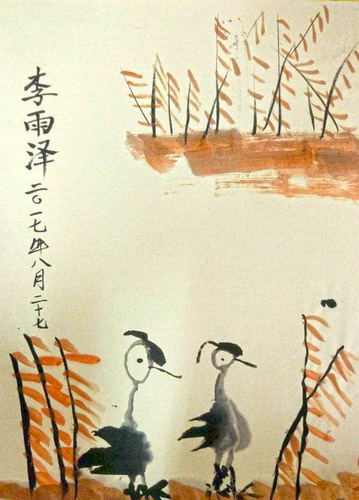 李雨泽 二〇一七年八月二十七